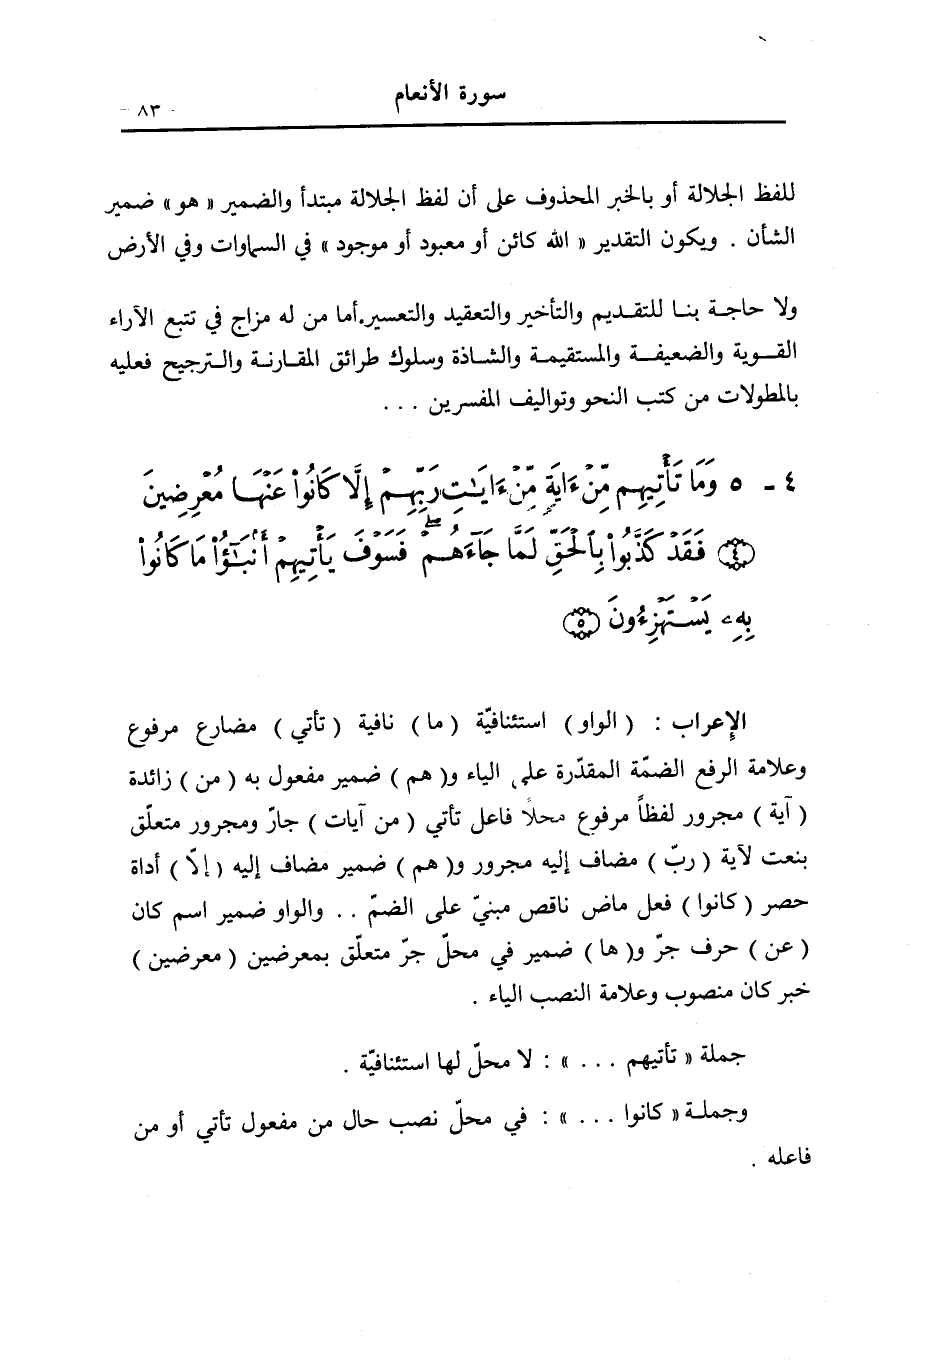 سورة الأنعام
- ٨٣ -
للفظ الجلالة أو بالخبر المحذوف على أن لفظ الجلالة مبتدأ والضمير « هو » ضمير
الشأن . ويكون التقدير « الله كائن أو معبود أو موجود » في السماوات وفي الأرض
ولا حاجة بنا للتقديم والتأخير والتعقيد والتعسير.أما من له مزاج في تتبع الآراء
القوية والضعيفة والمستقيمة والشاذة وسلوك طرائق المقارنة والترجيح فعليه
بالمطولات من كتب النحو وتواليف المفسرين . . .
٤ - ٥ وَمَا تَأْتِيهِم مِّنْ ءَايَةٍ مِّنْ ءَايَٰتِ رَبِّهِمْ إِلَّا كَانُوا۟ عَنْهَا مُعْرِضِينَ
﴿٤﴾ فَقَدْ كَذَّبُوا۟ بِٱلْحَقِّ لَمَّا جَآءَهُمْ ۖ فَسَوْفَ يَأْتِيهِمْ أَنۢبَٰٓؤُا۟ مَا كَانُوا۟
بِهِۦ يَسْتَهْزِءُونَ ﴿٥﴾
الإعراب : ( الواو ) استئنافيّة ( ما ) نافية ( تأتي ) مضارع مرفوع
وعلامة الرفع الضمّة المقدّرة على الياء و( هم ) ضمير مفعول به ( من ) زائدة
( آية ) مجرور لفظاً مرفوع محلاً فاعل تأتي ( من آيات ) جارّ ومجرور متعلّق
بنعت لآية ( ربّ ) مضاف إليه مجرور و( هم ) ضمير مضاف إليه ( إلّا ) أداة
حصر ( كانوا ) فعل ماض ناقص مبنيّ على الضمّ . . والواو ضمير اسم كان
( عن ) حرف جرّ و( ها ) ضمير في محلّ جرّ متعلّق بمعرضين ( معرضين )
خبر كان منصوب وعلامة النصب الياء .
جملة « تأتيهم . . . » : لا محلّ لها استئنافيّة .
وجملة « كانوا . . . » : في محلّ نصب حال من مفعول تأتي أو من
فاعله .